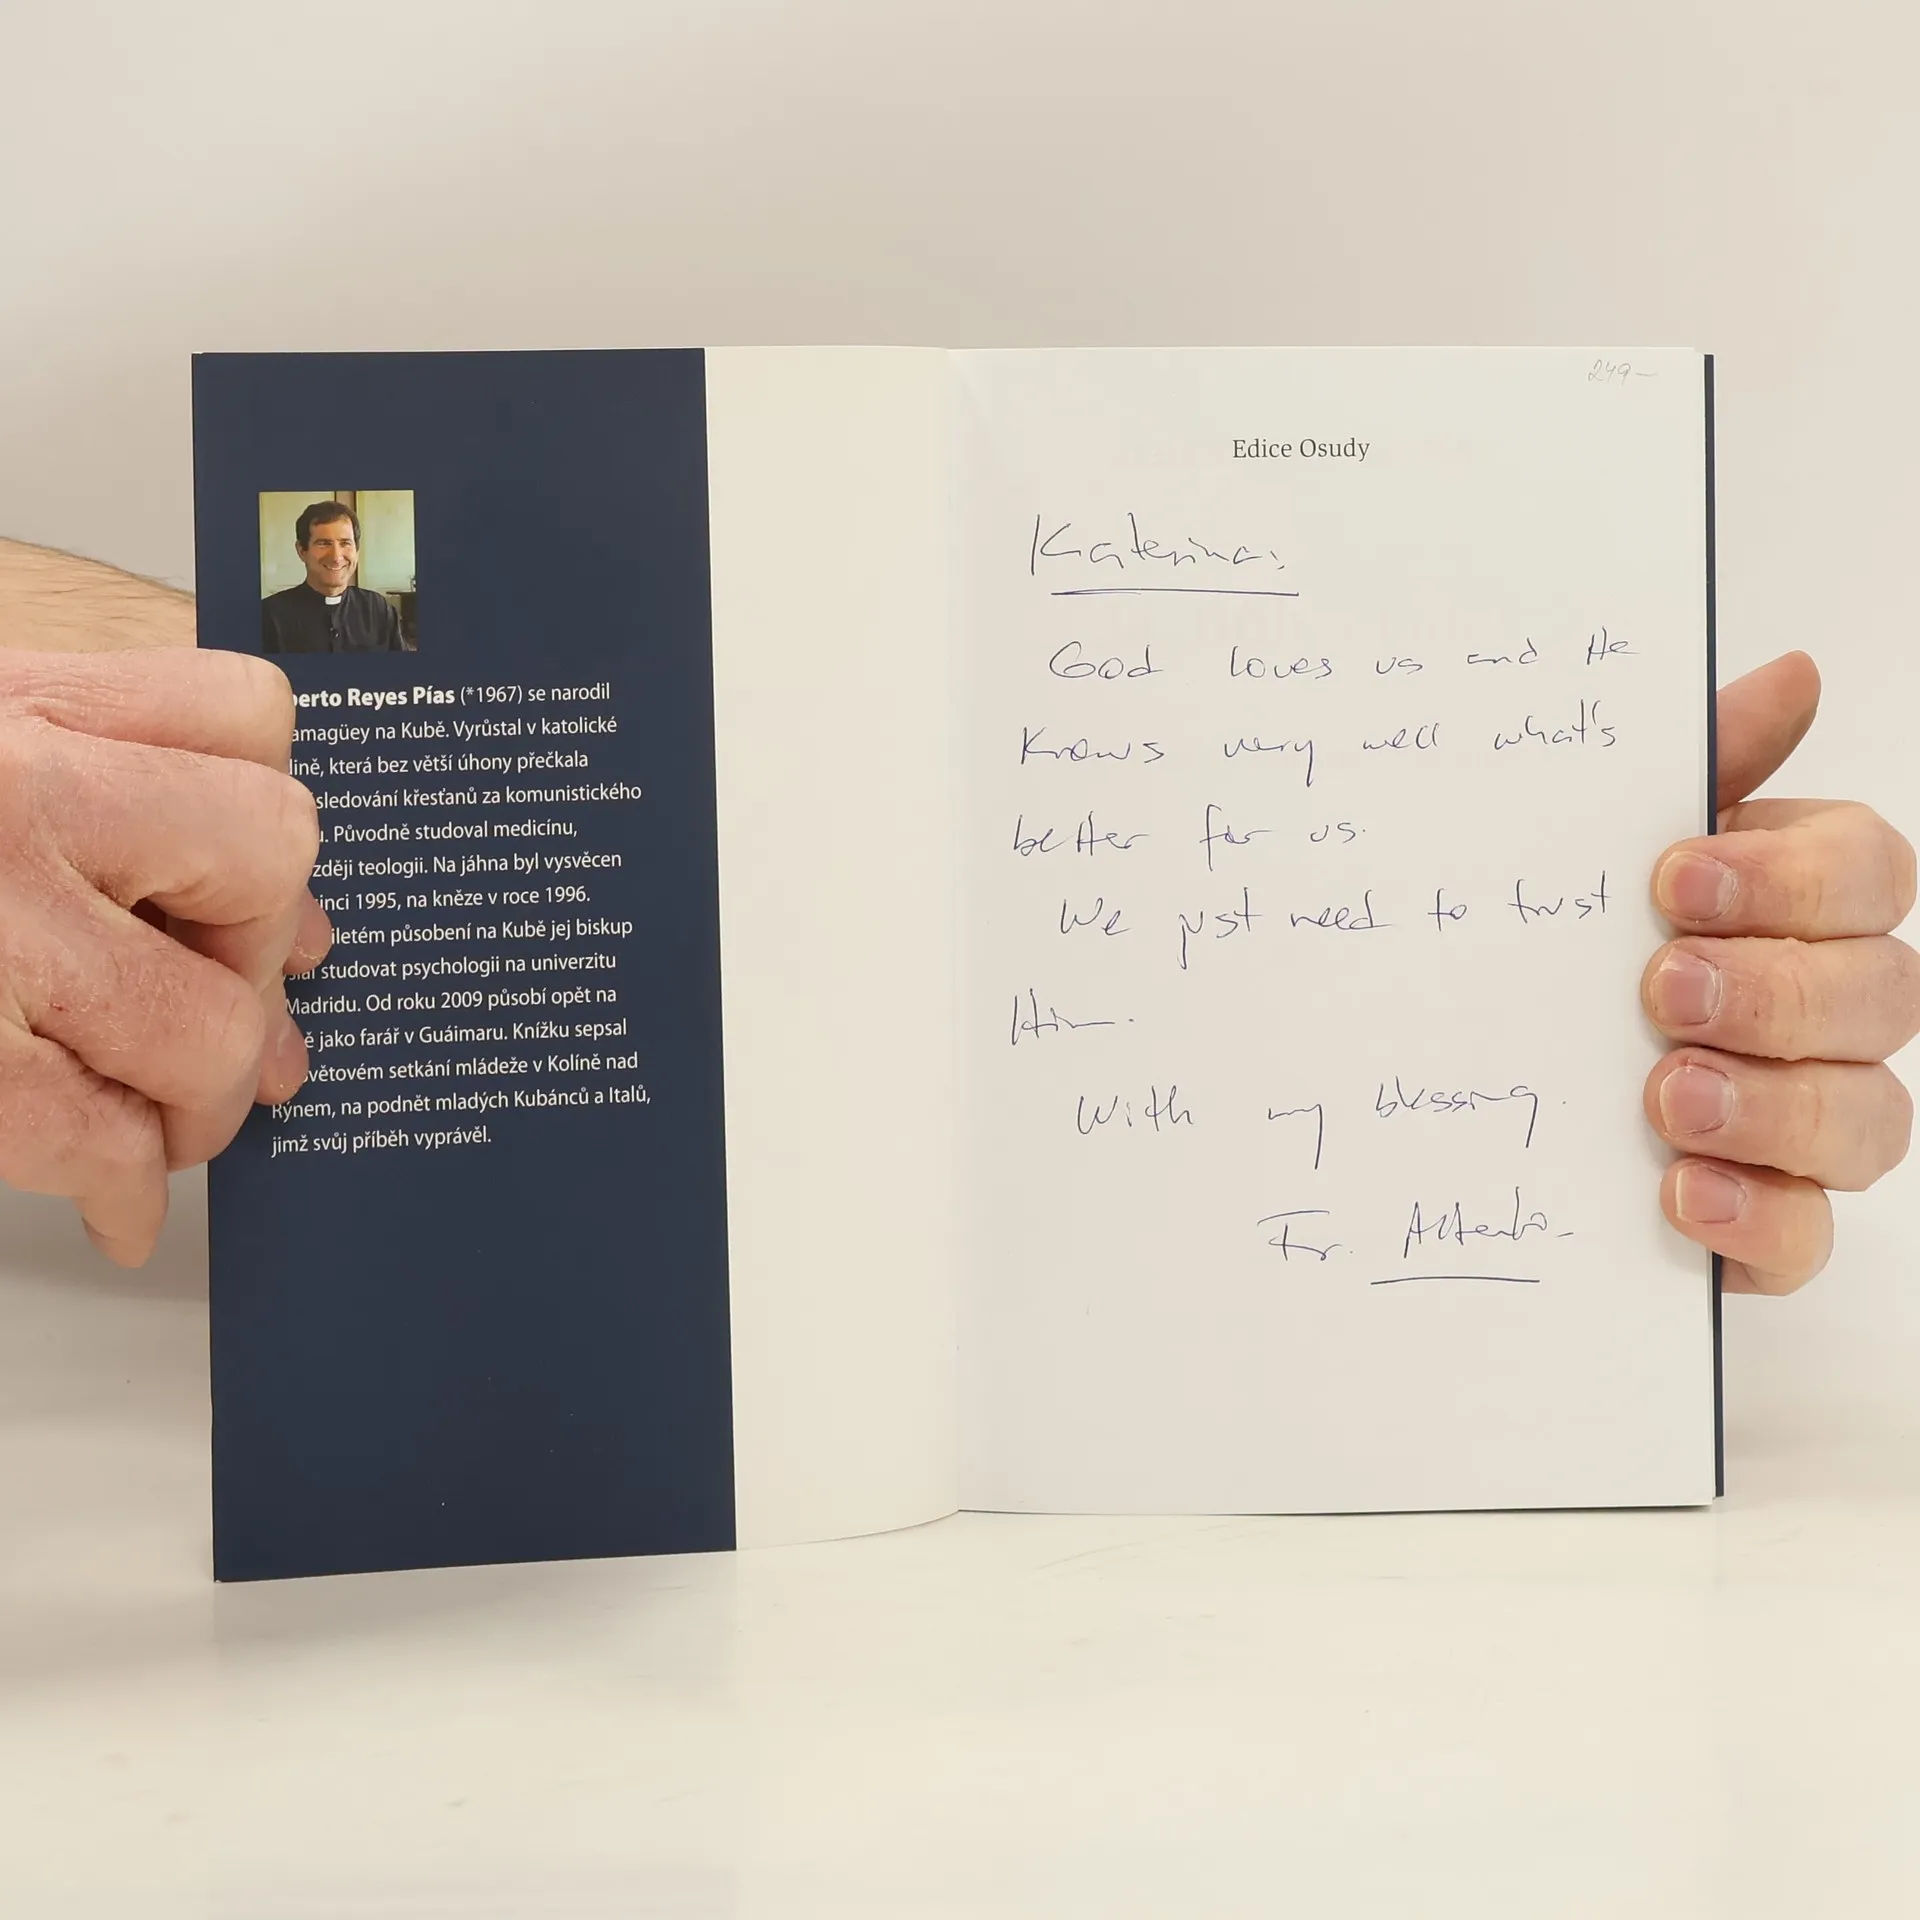 berto Reyes Pías (*1967) se narodil
amagüey na Kubě. Vyrůstal v katolické
dině, která bez větší úhony přečkala
sledování křesťanů za komunistického
u. Původně studoval medicínu,
zději teologii. Na jáhna byl vysvěcen
inci 1995, na kněze v roce 1996.
iletém působení na Kubě jej biskup
slal studovat psychologii na univerzitu
Madridu. Od roku 2009 působí opět na
ě jako farář v Guáimaru. Knížku sepsal
větovém setkání mládeže v Kolíně nad
Rýnem, na podnět mladých Kubánců a Italů,
jimž svůj příběh vyprávěl.
249-
Edice Osudy
Katerina:
God loves us and He
knows very well what's
better for us.
We just need to trust
Him.
With my blessing.
Fr. Alberto